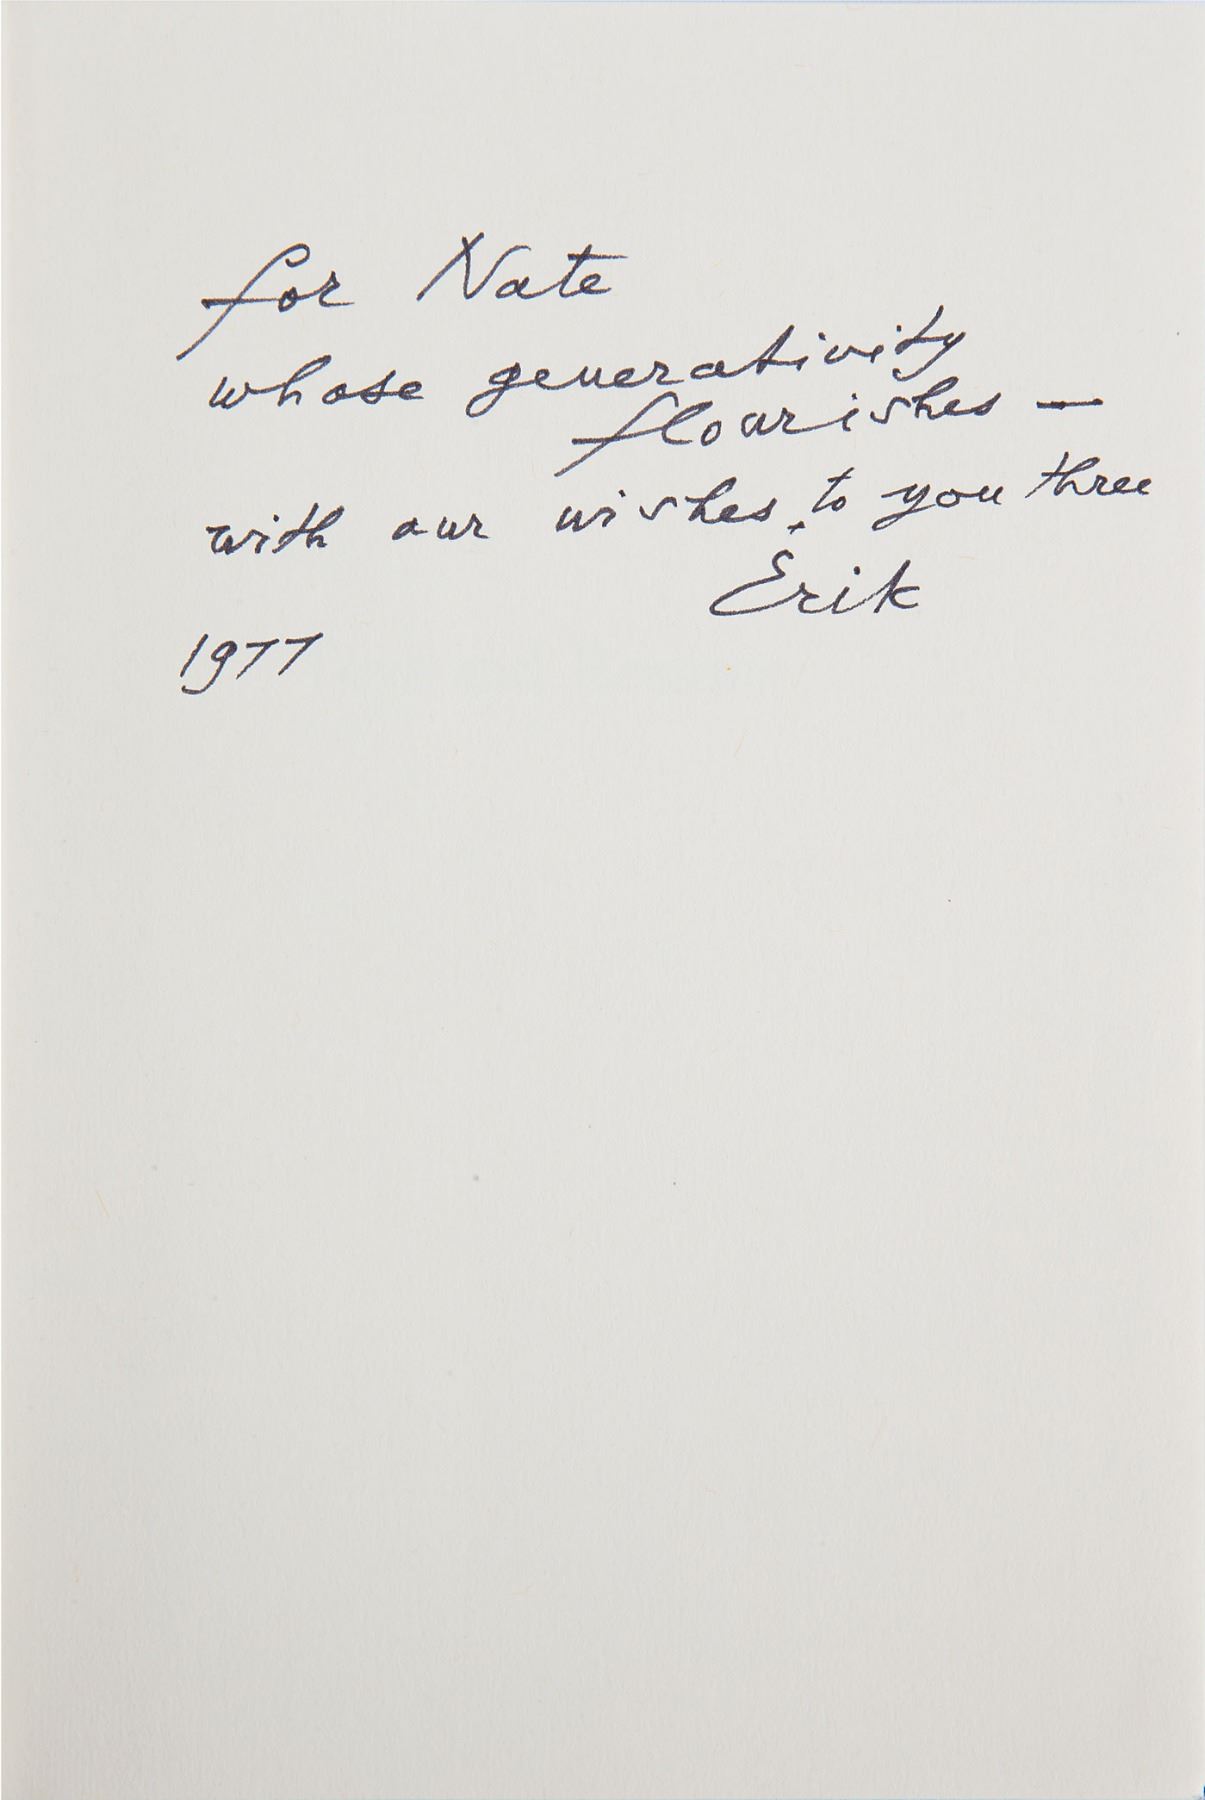 for Nate
whose generativity
flourishes —
with our wishes to you three
Erik
1977